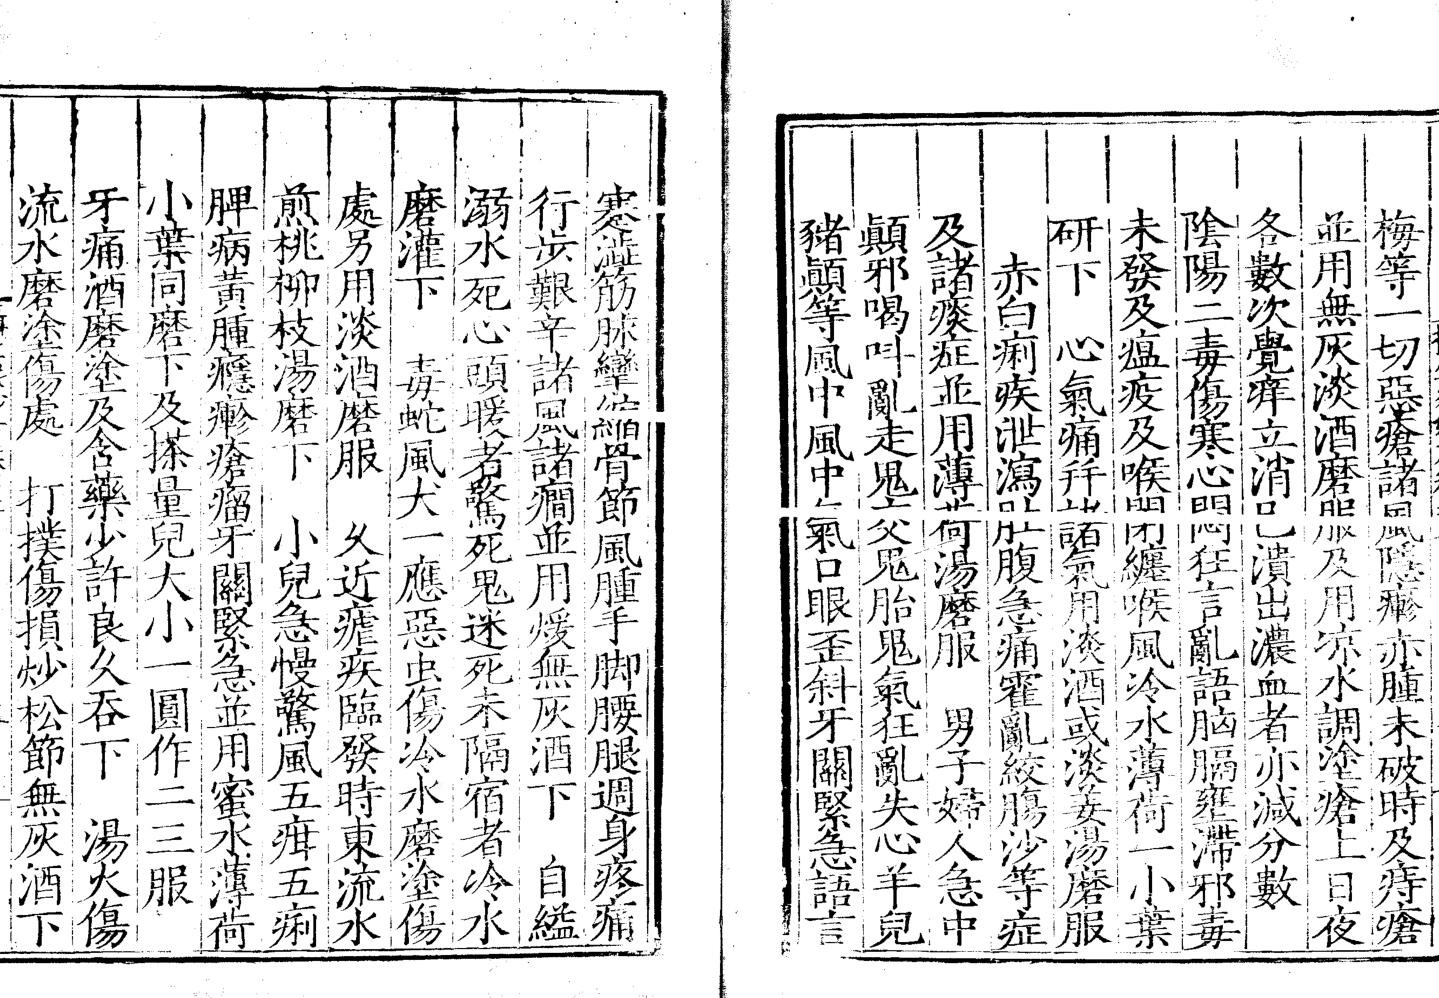 梅等一切惡瘡諸風隱癮赤腫未破時及痔瘡
並用無灰淡酒磨服及用凉水調塗瘡上日夜
各數次覺痒立消已潰出濃血者亦減分數
陰陽二毒傷寒心悶狂言亂語胸膈壅滯邪毒
未發及瘟疫及喉閉纏喉風冷水薄荷一小葉
研下　心氣痛并諸氣用淡酒或淡姜湯磨服
赤白痢疾泄瀉肚腹急痛霍亂絞腸沙等症
及諸痰症並用薄荷湯磨服　男子婦人急中
顛邪喝叫亂走鬼交鬼胎鬼氣狂亂失心羊兒
豬顛等風中風中氣口眼歪斜牙關緊急語言
蹇澁筋脉攣縮骨節風腫手脚腰腿週身疼痛
行步艱辛諸風諸癇並用煖無灰酒下　自縊
溺水死心頭暖者驚死鬼迷死未隔宿者冷水
磨灌下　毒蛇風犬一應惡虫傷冷水磨塗傷
處另用淡酒磨服　久近瘧疾臨發時東流水
煎桃柳枝湯磨下　小兒急慢驚風五疳五痢
脾病黃腫癮瘮瘡瘤牙關緊急並用蜜水薄荷
小葉同磨下及搽量兒大小一圓作二三服
牙痛酒磨塗及含藥少許良久吞下　湯火傷
流水磨塗傷處　打撲傷損炒松節無灰酒下